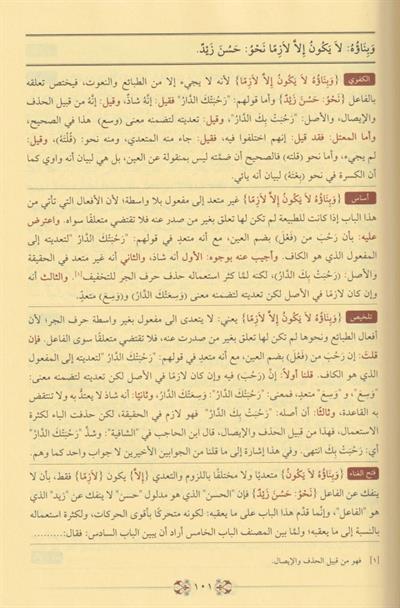 وَبِنَاؤُهُ: لاَ يَكُونُ إِلاَّ لاَزِمًا نَحْوُ: حَسُنَ زَيْدٌ.
الكفوي {وَبِنَاؤُهُ لاَ يَكُونُ إِلاَّ لاَزِمًا} لأنه لا يجيء إلا من الطبائع والنعوت، فيختص تعلقه
بالفاعل {نَحْوُ: حَسُنَ زَيْدٌ} وأما قولهم: "رَحُبَتْكَ الدَّارُ" فقيل: إنَّهُ شاذٌّ، وقيل: إنَّهُ من قبيل الحذف
والإيصال، والأصل: "رَحُبَتْ بِكَ الدَّارُ"، وقيل: تعديته لتضمنه معنى (وسع) هذا في الصحيح،
وأما المعتل: فقد قيل: إنهم اختلفوا فيه، فقيل: جاء منه المتعدي، ومنه نحو: (قُلْتَهُ)، وقيل:
لم يجيء، وأما نحو (قلته) فالصحيح أن ضمّته ليس بمنقولة عن العين، بل هي لبيان أنه واوي كما
أن الكسرة في نحو (بعْتَهُ) لبيان أنه يائي.
أساس {وَبِنَاؤُهُ لاَ يَكُونُ إِلاَّ لاَزِمًا} غير متعد إلى مفعول بلا واسطة؛ لأن الأفعال التي تأتي من
هذا الباب إذا كانت للطبيعة لم تكن لها تعلق بغير من صدر عنه فلا تقتضي متعلقًا سواه. واعترض
عليه: بأن رَحُبَ من (فَعُلَ) بضم العين، مع أنه متعدٍ في قولهم: "رَحُبَتْكَ الدَّارُ" لتعديته إلى
المفعول الذي هو الكاف. وأجيب عنه بوجوه: الأول أنه شاذ، والثاني أنه غير متعد في الحقيقة
والأصل: (رَحُبَتْ بِكَ الدَّارُ)، لكنه لمّا كثر استعماله حذف حرف الجر للتخفيف[١]. والثالث أنه
وإن كان لازمًا في الأصل لكن تعديته لتضمنه معنى (وَسِعَتْكَ الدَّارُ) و(وَسِعَ) متعدٍ.
تلخيص {وَبِنَاؤُهُ لاَ يَكُونُ إِلاَّ لاَزِمًا} يعني: لا يتعدى الى مفعول بغير واسطة حرف الجر؛ لأن
أفعال الطبائع ونحوها لم تكن لها تعلق بغير من صدرت عنه، فلا تقتضي متعلقًا سوى الفاعل. فإن
قلتَ: إن رَحُبَ من (فَعُلَ) بضم العين، مع أنه متعدٍ في قولهم: "رَحُبَتْكَ الدَّارُ" لتعديته إلى المفعول
الذي هو الكاف. قلنا أولاً: إنَّ (رَحُبَ) فيه وإن كان لازمًا في الأصل لكن تعديته لتضمنه معنى:
"وَسِعَ"، و "وَسِعَ" متعدٍ، فمعنى: "رَحُبَتْكَ الدَّارُ": وَسِعَتْكَ الدَّارُ، وثانيًا: أنه شاذ لا يعتدُّ به ولا تنتقض
به القاعدة، وثالثًا: أن أصله: "رَحُبَتْ بِكَ الدَّارُ" فهو لازم في الحقيقة، لكن حذفت الباء لكثرة
الاستعمال، فهذا من قبيل الحذف والإيصال، قال ابن الحاجب في "الشافية": وشذَّ "رَحُبَتْكَ الدَّارُ"
أي: رَحُبَتْ بِكَ انتهى. وفي هذا إشارة إلى ما قلنا من الجوابين الأخيرين لا جواب واحد كما وهم.
فتح الغناء {وَبِنَاؤُهُ لاَ يَكُونُ} متعديًا ولا مختلفًا باللزوم والتعدي {إِلاَّ} يكون {لاَزِمًا} فقط، بأن لا
ينفك عن الفاعل {نَحْوُ: حَسُنَ زَيْدٌ} فإن "الحسن" الذي هو مدلول "حسن" لا ينفك عن "زيد" الذي
هو "الفاعل"، وإنما قدّم هذا الباب على ما يعقبه: لكونه متحركًا بأقوى الحركات، ولكثرة استعماله
بالنسبة إلى ما يعقبه؛ ولمّا بين المصنف الباب الخامس أراد أن يبين الباب السادس: فقال:..........
[١] فهو من قبيل الحذف والإيصال.
١٠١